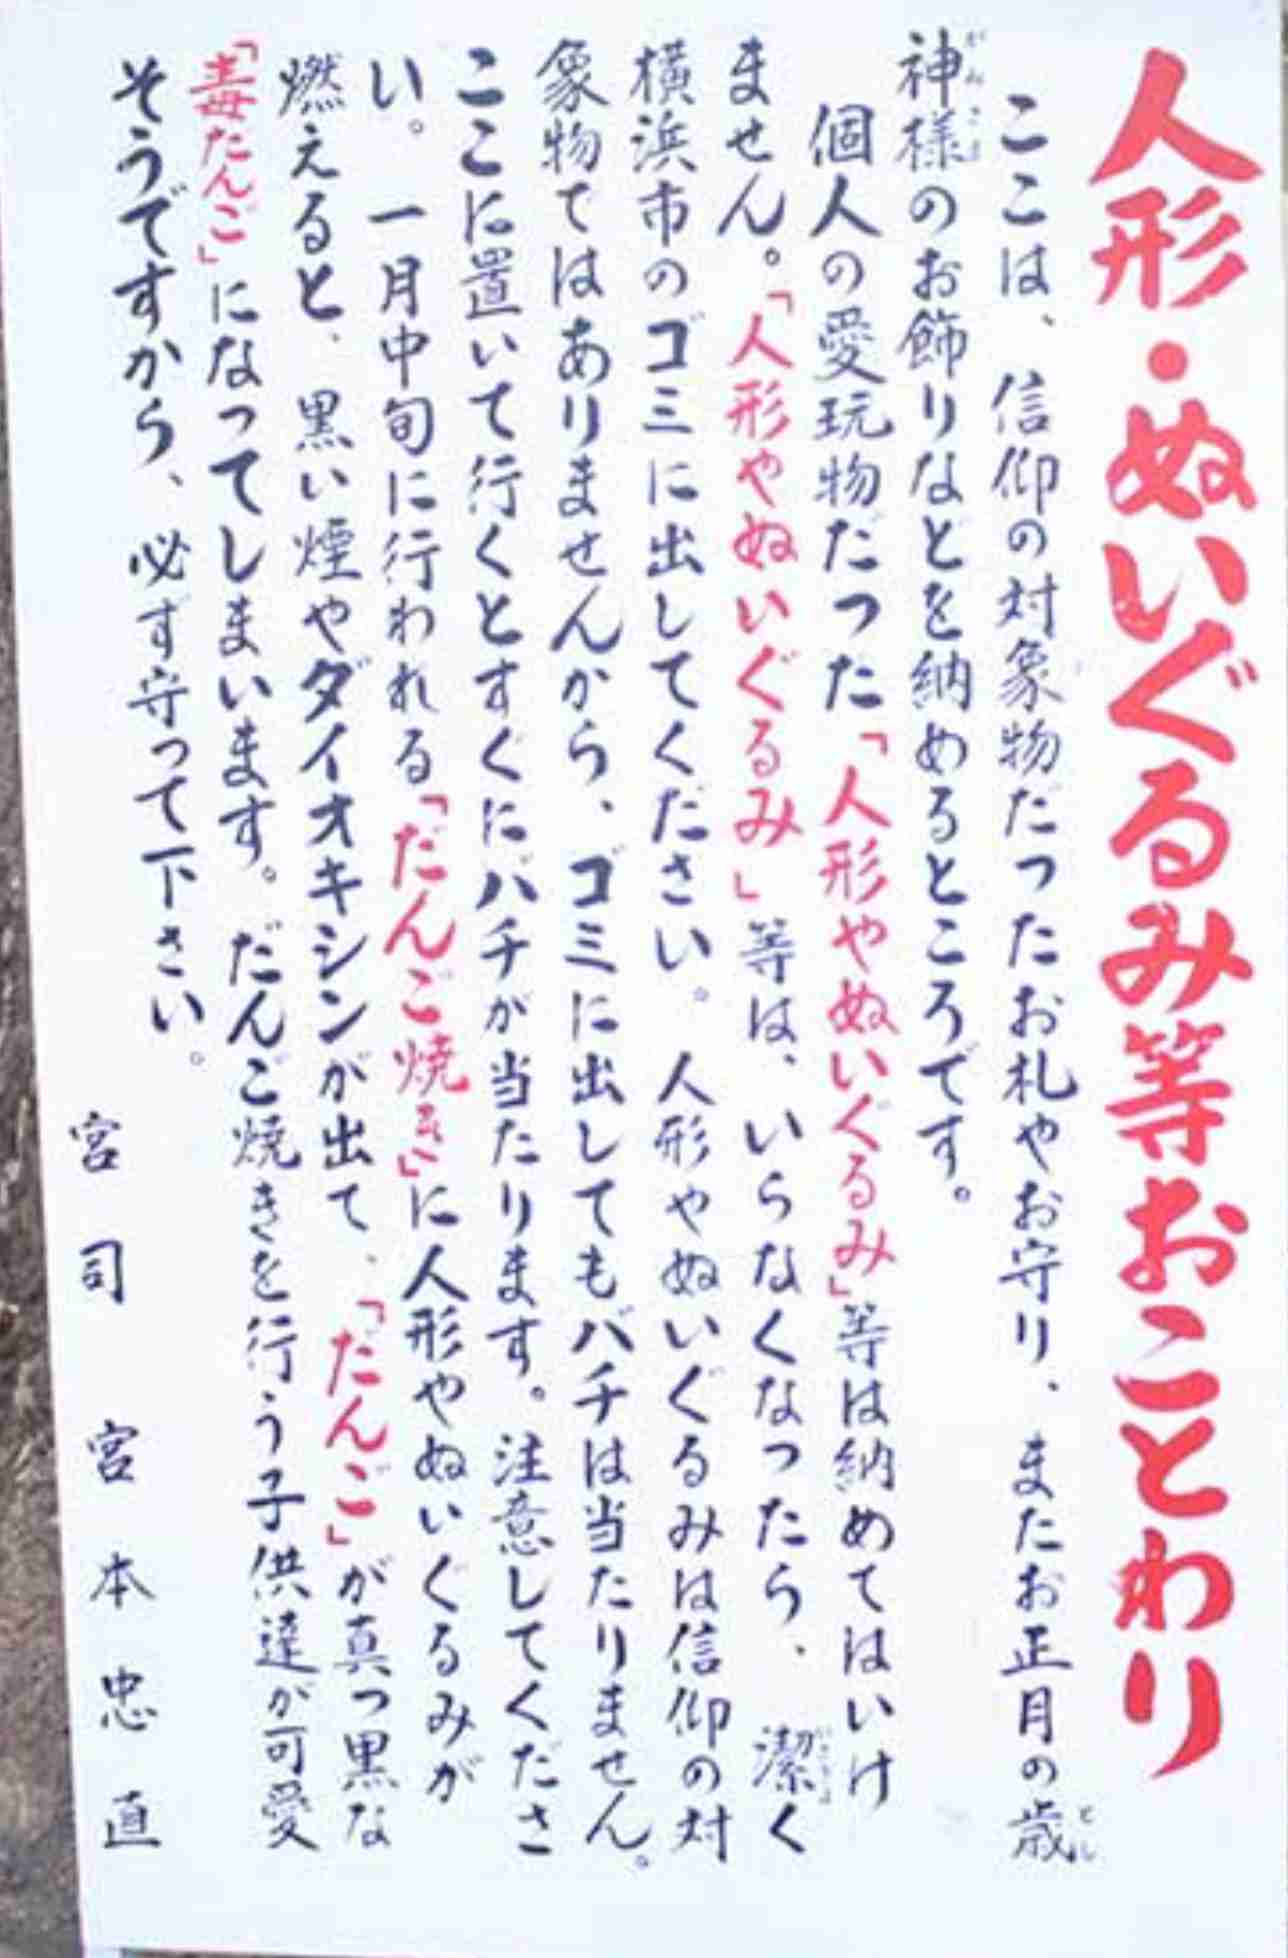 人形・ぬいぐるみ等おことわり
ここは、信仰の対象物だったお札やお守り、またお正月の歳
神様のお飾りなどを納めるところです。
個人の愛玩物だった「人形やぬいぐるみ」等は納めてはいけ
ません。「人形やぬいぐるみ」等は、いらなくなったら、潔く
横浜市のゴミに出してください。人形やぬいぐるみは信仰の対
象物ではありませんから、ゴミに出してもバチは当たりません。
ここに置いて行くとすぐにバチが当たります。注意してくださ
い。一月中旬に行われる「だんご焼き」に人形やぬいぐるみが
燃えると、黒い煙やダイオキシンが出て、「だんご」が真っ黒な
「毒だんご」になってしまいます。だんご焼きを行う子供達が可愛
そうですから、必ず守って下さい。
宮司 宮本忠直